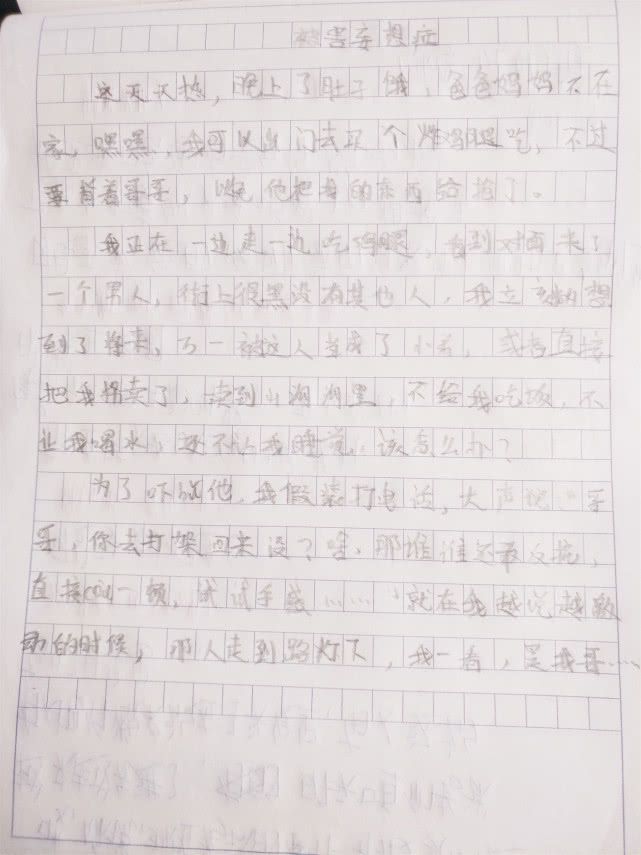 被害妄想症
这天天热，晚上了肚子饿，爸爸妈妈不在
家，嘿嘿，我可以出门去买个炸鸡腿吃，不过
要背着哥哥，以免他把我的东西给抢了。
我正在一边走一边吃鸡腿，看到对面来了
一个男人，街上很黑没有其他人，我立刻想
到了，万一被这人当成了小，或者直接
把我拐卖了，卖到山沟沟里，不给我吃饭，不
让我喝水，还不让我睡觉，该怎么办？
为了吓唬他，我假装打电话，大声说“哥
哥，你去打架回来没？嗐，那谁谁交反抗，
直接cou一顿，试试手感……”就在我越说越激
动的时候，那人走到路灯下，我一看，是我哥……